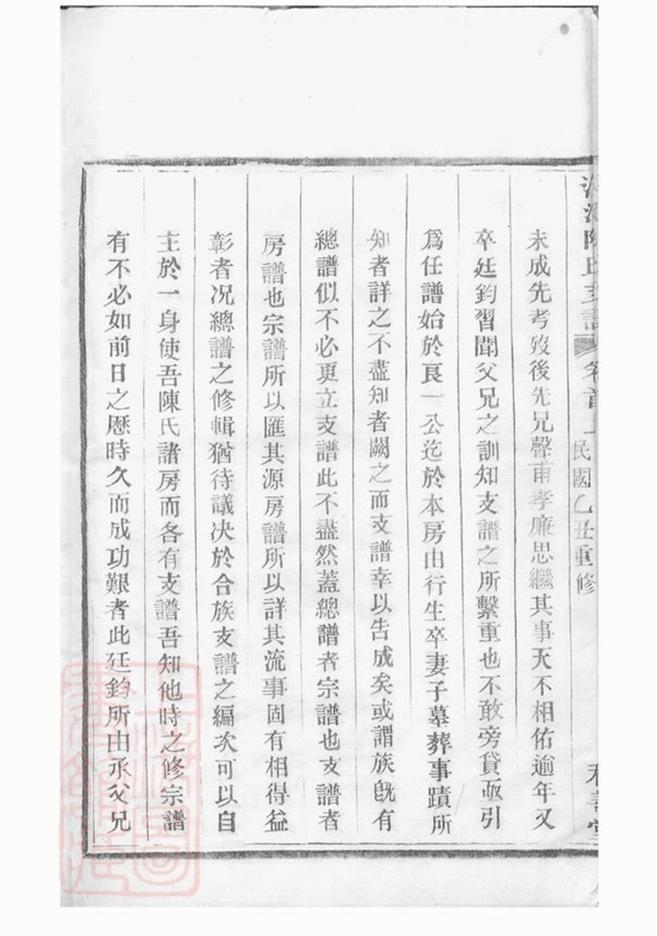 陳氏支譜 卷首 民國乙丑重修
未成先考歿後先兄聲甫孝廉思繼其事天不相佑逾年又
卒廷鈞習聞父兄之訓知支譜之所繫重也不敢旁貸亟引
爲任譜始於良一公迄於本房由行生卒妻子墓葬事蹟所
知者詳之不盡知者闕之而支譜幸以告成矣或謂族旣有
總譜似不必更立支譜此不盡然蓋總譜者宗譜也支譜者
房譜也宗譜所以匯其源房譜所以詳其流事固有相得益
彰者况總譜之修輯猶待議决於合族支譜之編次可以自
主於一身使吾陳氏諸房而各有支譜吾知他時之修宗譜
有不必如前日之歷時久而成功艱者此廷鈞所由承父兄